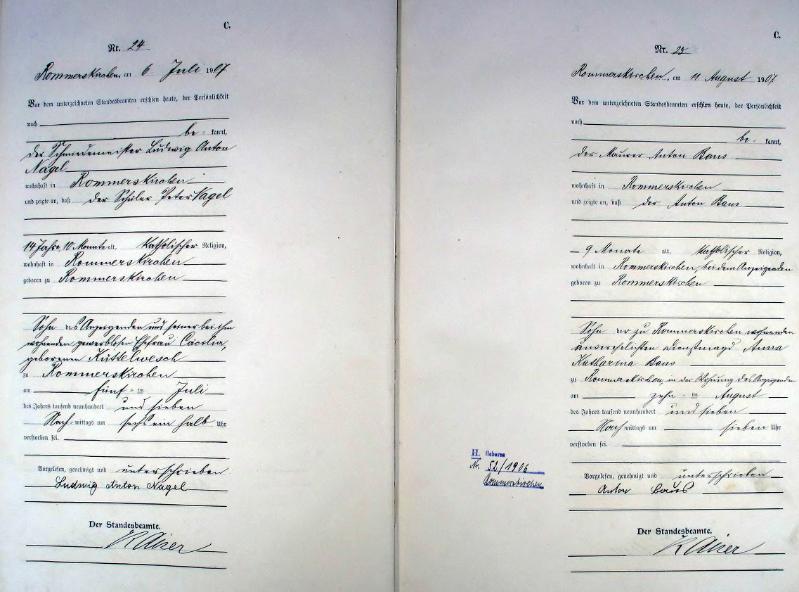 C.
Nr. 24
Rommerskirchen, am 6 Juli 1907
Vor dem unterzeichneten Standesbeamten erschien heute, der Persönlichkeit
nach
be kannt,
der Schmiedemeister Ludwig Anton
Nagel
wohnhaft in Rommerskirchen
und zeigte an, daß der Schüler Peter Nagel
14 Jahre, 10 Monate alt, katholischer Religion,
wohnhaft in Rommerskirchen
geboren zu Rommerskirchen
Sohn des Anzeigenden und seiner bei ihm
wohnenden Ehefrau Cäcilia,
geborenen
zu Rommerskirchen
am fünf ten Juli
des Jahres tausend neunhundert und sieben
Nach mittags um Uhr
verstorben sei.
Vorgelesen, genehmigt und unterschrieben
Ludwig Anton Nagel
Der Standesbeamte.
C.
Nr. 25
Rommerskirchen, am 11 August 1907
Vor dem unterzeichneten Standesbeamten erschien heute, der Persönlichkeit
nach
be kannt,
der Maurer Anton Baus
wohnhaft in Rommerskirchen
und zeigte an, daß der Anton Baus
9 Monate alt, katholischer Religion,
wohnhaft in Rommerskirchen, bei dem Anzeigenden
geboren zu Rommerskirchen
Sohn der zu Rommerskirchen wohnenden
unverehelichten Dienstmagd Anna
Katharina Baus
zu Rommerskirchen in der Wohnung des Anzeigenden
am zehn ten August
des Jahres tausend neunhundert und sieben
Nach mittags um sieben Uhr
verstorben sei.
H. Geboren
Nr. 52/1906
Rommerskirchen
Vorgelesen, genehmigt und unterschrieben
Anton Baus
Der Standesbeamte.